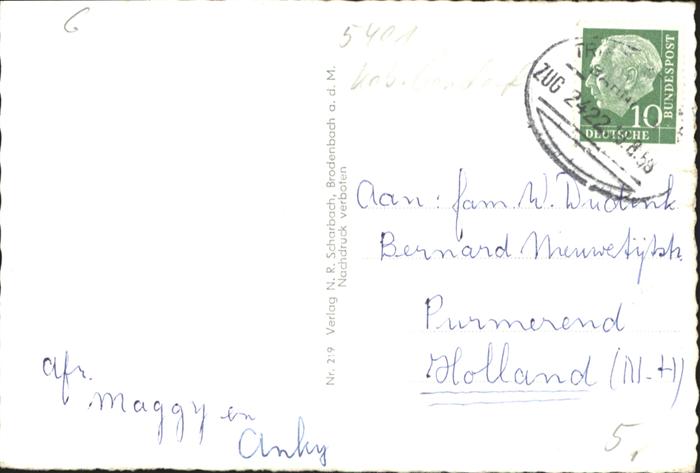 6
5401
TRIER
ZUG 2422
8.59
BUNDESPOST
10
DEUTSCHE
Nr. 219 Verlag N. R. Scharbach, Brodenbach a. d. M.
Nachdruck verboten
Aan: fam. W. Wudink
Bernard Nieuwetijtstr.
Purmerend
Holland (N-H)
afz.
Maggy en
Anky
5,